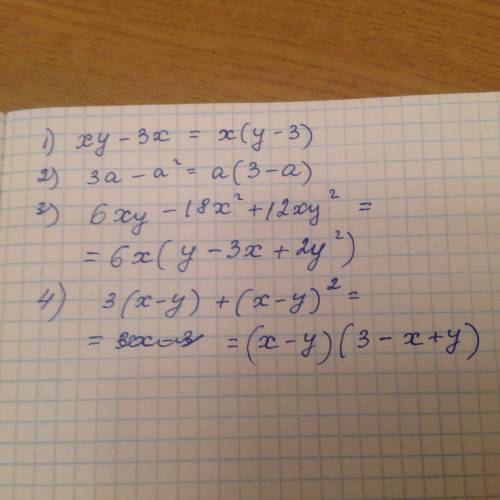 1) xy - 3x = x(y - 3)
2) 3a - a² = a(3 - a)
3) 6xy - 18x² + 12xy² =
= 6x(y - 3x + 2y²)
4) 3(x-y) + (x-y)² =
= = (x-y)(3 - x + y)